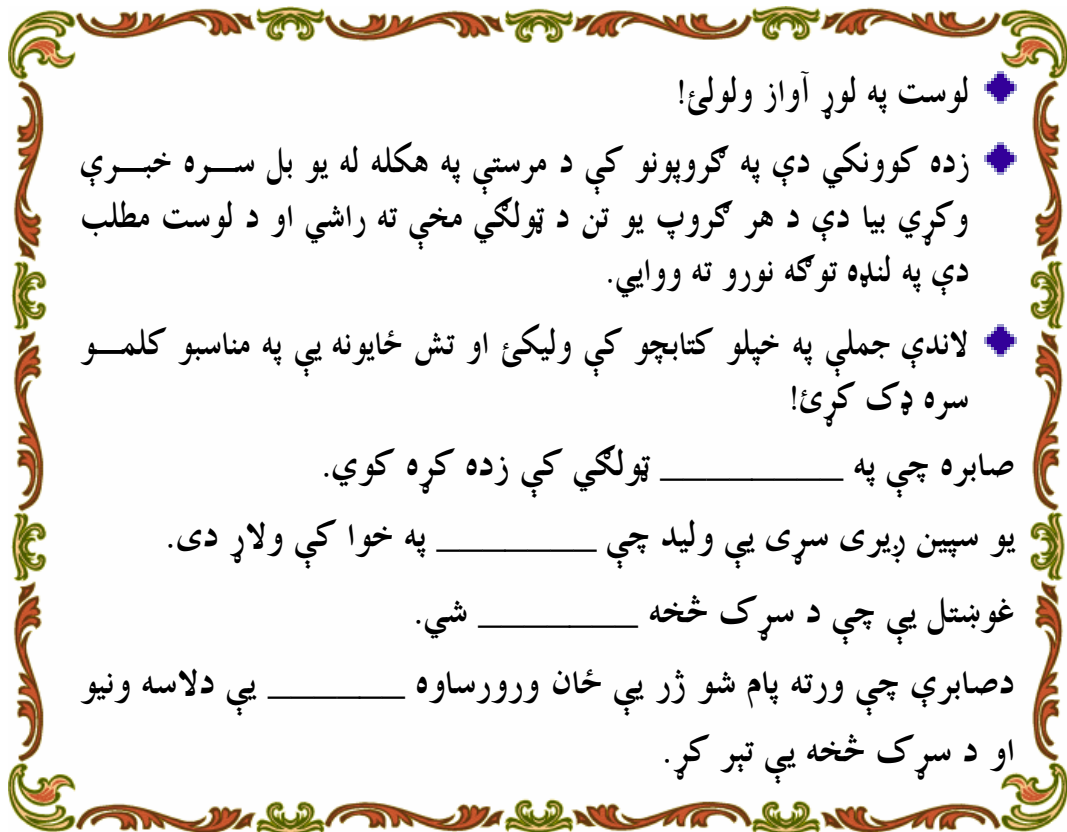 لوست په لوړ آواز ولولئ!
زده کوونکي دې په ګروپونو کې د مرستې په هکله له يو بل ســره خبــرې
وکړي بيا دې د هر ګروپ يو تن د ټولګي مخې ته راشي او د لوست مطلب
دې په لنډه توګه نورو ته ووايي.
لاندې جملې په خپلو کتابچو کې وليکئ او تش ځايونه يې په مناسبو کلمــو
سره ډک کړئ!
صابره چې په ________ ټولګي کې زده کړه کوي.
يو سپين ږيری سړی يې وليد چې _______ په خوا کې ولاړ دی.
غوښتل يې چې د سړک څخه _______ شي.
دصابرې چې ورته پام شو ژر يې ځان ورورساوه ______ يې دلاسه ونيو
او د سړک څخه يې تېر کړ.